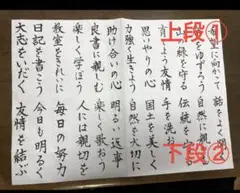 上段①
下段②
望に向かって 話をよく
をゆずろう 自然に親
緑を守る 伝統を
育 よう友情 手を洗
思いやりの心 国土を美しく
力強く生きよう 自然を大切に
助け合いの心 明るい返事
良書に親しむ 楽しく歌おう
楽しく学ぼう 人には親切を
教室をきれいに 毎日の努力
日記を書こう 今日も明るく
大志をいだく 友情を結ぶ